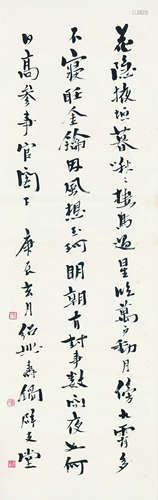 花隱掖垣暮啾々棲鳥過星臨萬戶動月傍九霄多
不寢聽金鑰因風想玉珂明朝有封事數問夜如何
日高參事官閣下 庚辰 月紹興壽鑈辟支堂